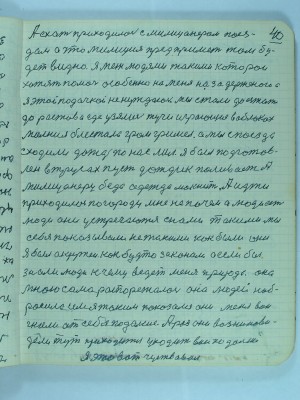 40
А ехать приходилось с милиционером поез-
дом а что милиция предпримет там бу-
дет видно. Я меж людями такими которой
хотят помоч особенно на меня на задержаного а
я этой подачкой не нуждаюсь мы стали доезжать
до растова где узялись тучи играющие в облаках
молния блестала гром гримел. а мы споезда
сходили дождь по нас лил. я был подготов-
лен в трусах пуст дождик поливает. А
милиционеру беда одежда мокнит. А идти
приходилось по городу мне на почом а людям
люди они устречаются снами такими мы
себя показывали не такими как были они
я был окручен как будто законам осел был
за ели люди к чему ведет меня природа. она
мною сама распорежалась она людей наб-
росилась им я таким показался они меня вон
гнали от себя подальше. А раз они возникова-
дели тут приходится уходить вон подальше
я это вот чуствовал